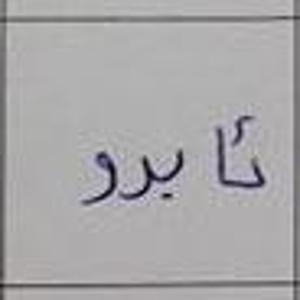 ئابرو